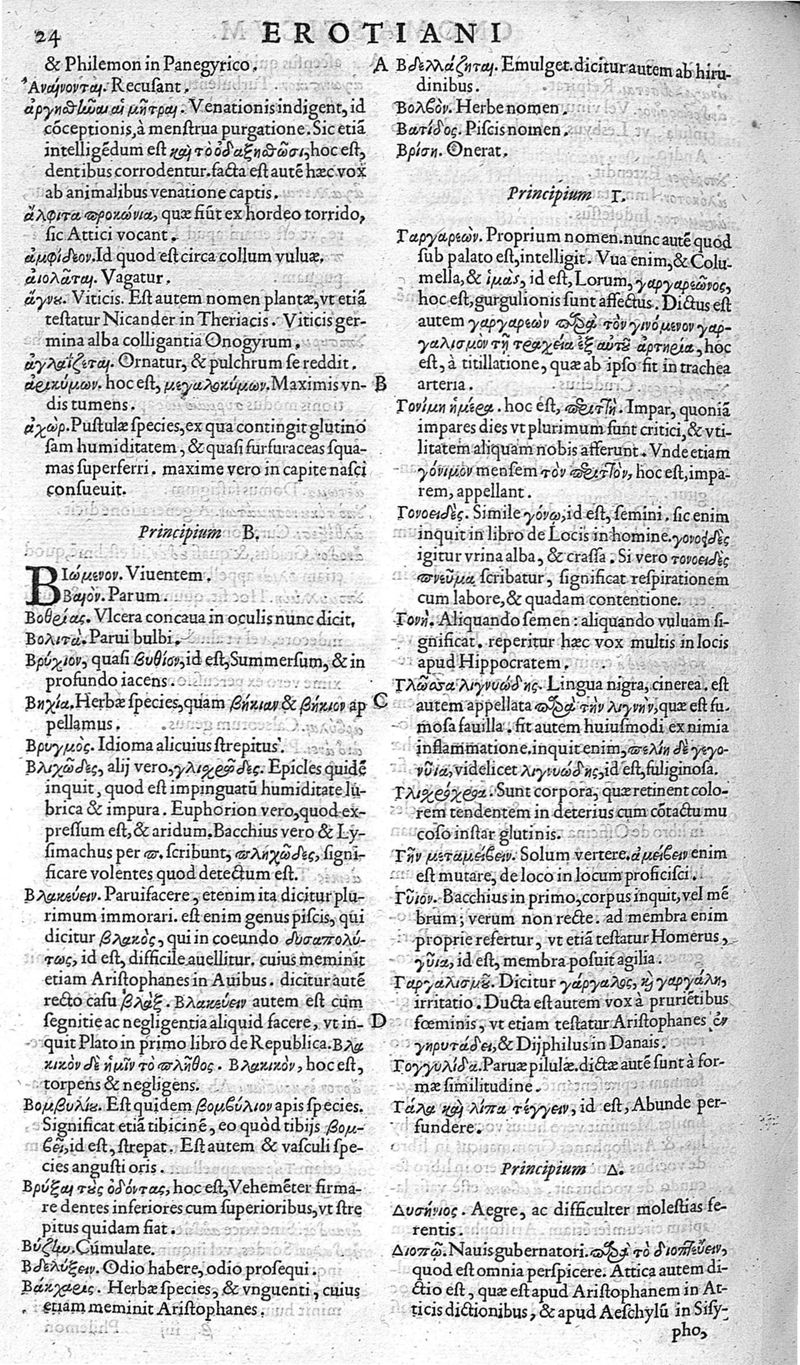 24
EROTIANI
& Philemon in Panegyrico.
Ἀναίνονται. Recusant.
ἀργηθῶσι αἱ μῆτραι. Venationis indigent, id
cōceptionis, à menstrua purgatione. Sic etiā
intelligēdum est καὶ τὸ ὀδαξηθῶσι, hoc est,
dentibus corrodentur. facta est autē hæc vox
ab animalibus venatione captis.
ἄλφιτα προκώνια, quæ fiūt ex hordeo torrido,
sic Attici vocant.
ἀμφίδεον. Id quod est circa collum vuluæ.
αἰολᾶται. Vagatur.
ἄγνȣ. Viticis. Est autem nomen plantæ, vt etiā
testatur Nicander in Theriacis. Viticis ger-
mina alba colligantia Onogyrum.
ἀγλαΐζεται. Ornatur, & pulchrum se reddit.
ἀρικύμων. hoc est, μεγαλοκύμων. Maximis vn-
dis tumens.
ἀχώρ. Pustulæ species, ex qua contingit glutino
sam humiditatem, & quasi furfuraceas squa-
mas superferri. maxime vero in capite nasci
consueuit.
Principium B.
BΙώμενον. Viuentem.
Βαιόν. Parum.
Βοθρίας. Vlcera concaua in oculis nunc dicit.
Βολιτά. Parui bulbi.
Βρύχιον, quasi βυθίον, id est, Summersum, & in
profundo iacens.
Βηχία. Herbæ species, quam βήκιαν & βήκιον ap
pellamus.
Βρυγμός. Idioma alicuius strepitus.
Βλιχῶδες, alij vero, γλιχρῶδες. Epicles quidē
inquit, quod est impinguatū humiditate lu-
brica & impura. Euphorion vero, quod ex-
pressum est, & aridum. Bacchius vero & Ly-
simachus per π. scribunt, πληχῶδες, signi-
ficare volentes quod detectum est.
Βλακεύειν. Paruifacere, etenim ita dicitur plu-
rimum immorari. est enim genus piscis, qui
dicitur βλακὸς, qui in coeundo δυσαπολύ-
τως, id est, difficile auellitur. cuius meminit
etiam Aristophanes in Auibus. dicitur autē
recto casu βλὰξ. Βλακεύειν autem est cum
segnitie ac negligentia aliquid facere, vt in-
quit Plato in primo libro de Republica. Βλα
κικὸν δὲ ἡμῖν τὸ πλῆθος. Βλακικὸν, hoc est,
torpens & negligens.
Βομβυλίȣ. Est quidem βομβύλιον apis species.
Significat etiā tibicinē, eo quòd tibijs βομ-
βεῖ, id est, strepat. Est autem & vasculi spe-
cies angusti oris.
Βρύξαι τȣ̀ς ὀδόντας, hoc est, Vehemēter firma-
re dentes inferiores cum superioribus, vt stre
pitus quidam fiat.
Βύζην. Cumulate.
Βδελύξειν. Odio habere, odio prosequi.
Βάκχαρις. Herbæ species, & vnguenti, cuius
etiam meminit Aristophanes.
A
B
C
D
Βδελλάζηται. Emulget. dicitur autem ab hiru-
dinibus.
Βολβόν. Herbe nomen.
Βατίδος. Piscis nomen.
Βρίση. Onerat.
Principium Γ.
Γαργαρεών. Proprium nomen. nunc autē quod
sub palato est, intelligit. Vua enim, & Colu-
mella, & ἱμὰς, id est, Lorum, γαργαρεῶνος,
hoc est, gurgulionis sunt affectus. Dictus est
autem γαργαρεὼν παρὰ τὸν γινόμενον γαρ-
γαλισμὸν τῇ τραχείᾳ ἐξ αὐτȣ͂ ἀρτηρίᾳ, hoc
est, à titillatione, quæ ab ipso fit in trachea
arteria.
Γονίμη ἡμέρα. hoc est, περιττή. Impar, quoniā
impares dies vt plurimum sunt critici, & vti-
litatem aliquam nobis afferunt. Vnde etiam
γόνιμον mensem τὸν περιττὸν, hoc est, impa-
rem, appellant.
Γονοειδὲς. Simile γόνῳ, id est, semini. sic enim
inquit in libro de Locis in homine. γονοειδὲς
igitur vrina alba, & crassa. Si vero τονοειδὲς
πνεῦμα scribatur, significat respirationem
cum labore, & quadam contentione.
Γονὴ. Aliquando semen: aliquando vuluam si-
gnificat. reperitur hæc vox multis in locis
apud Hippocratem.
Γλῶσσα λιγνυώδης. Lingua nigra, cinerea. est
autem appellata παρὰ τὴν λιγνὴν, quæ est fu-
mosa fauilla. fit autem huiusmodi ex nimia
inflammatione. inquit enim, πελίη δὲ γεγο-
νυῖα, videlicet λιγνυώδης, id est, fuliginosa.
Γλισχρόχρεα. Sunt corpora, quæ retinent colo-
rem tendentem in deterius cum cōtactu mu
coso instar glutinis.
Γῆν μεταμείβειν. Solum vertere. ἀμείβειν enim
est mutare, de loco in locum proficisci.
Γυῖον. Bacchius in primo, corpus inquit, vel mē
brum; verum non recte. ad membra enim
proprie refertur, vt etiā testatur Homerus,
γυῖα, id est, membra posuit agilia.
Γαργαλισμȣ͂. Dicitur γάργαλος, καὶ γαργάλη,
irritatio. Ducta est autem vox à pruriētibus
fœminis, vt etiam testatur Aristophanes ἐν
γηρυτάδει, & Dijphilus in Danais.
Γογγυλίδα. Paruæ pilulæ. dictæ autē sunt à for-
mæ similitudine.
Γάλα καὶ λίπα τέγγειν, id est, Abunde per-
fundere.
Principium Δ.
Δυσήνιος. Aegre, ac difficulter molestias fe-
rentis.
Διοπῶ. Nauis gubernatori. παρὰ τὸ διοπτεύειν,
quod est omnia perspicere. Attica autem di-
ctio est, quæ est apud Aristophanem in At-
ticis dictionibus, & apud Aeschylū in Sisy-
pho,